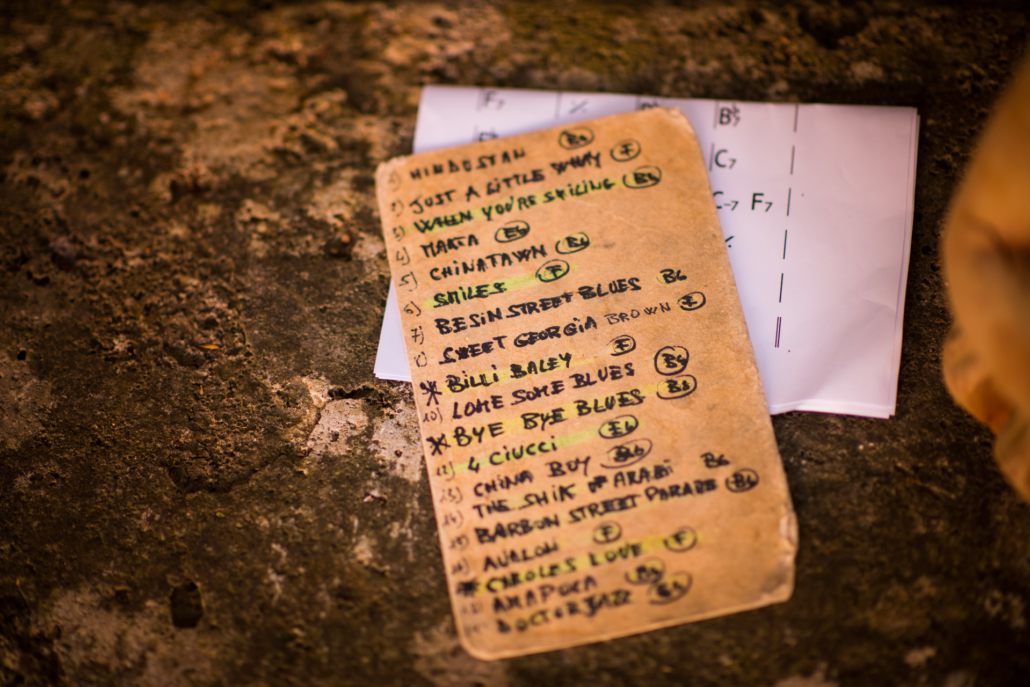 1) HINDUSTAN Bb
2) JUST A LITTLE WHAY F
3) WHEN YOU'RE SMILING Bb
4) MARTA Eb
5) CHINATAWN Eb
6) SMILES F
7) BESIN STREET BLUES Bb
8) SWEET GEORGIA BROWN F
BILLI BALEY F
10) LONE SOME BLUES Bb
BYE BYE BLUES Bb
12) 4 CIUCCI Eb
13) CHINA BUY Bb
14) THE SHIK OF ARABI Bb
15) BARBON STREET PARADE Bb
16) AVALON F
CAROLES LOVE F
AMAPOLA
DOCTOR JAZZ
F7 %
B♭7
C7
C-7 F7